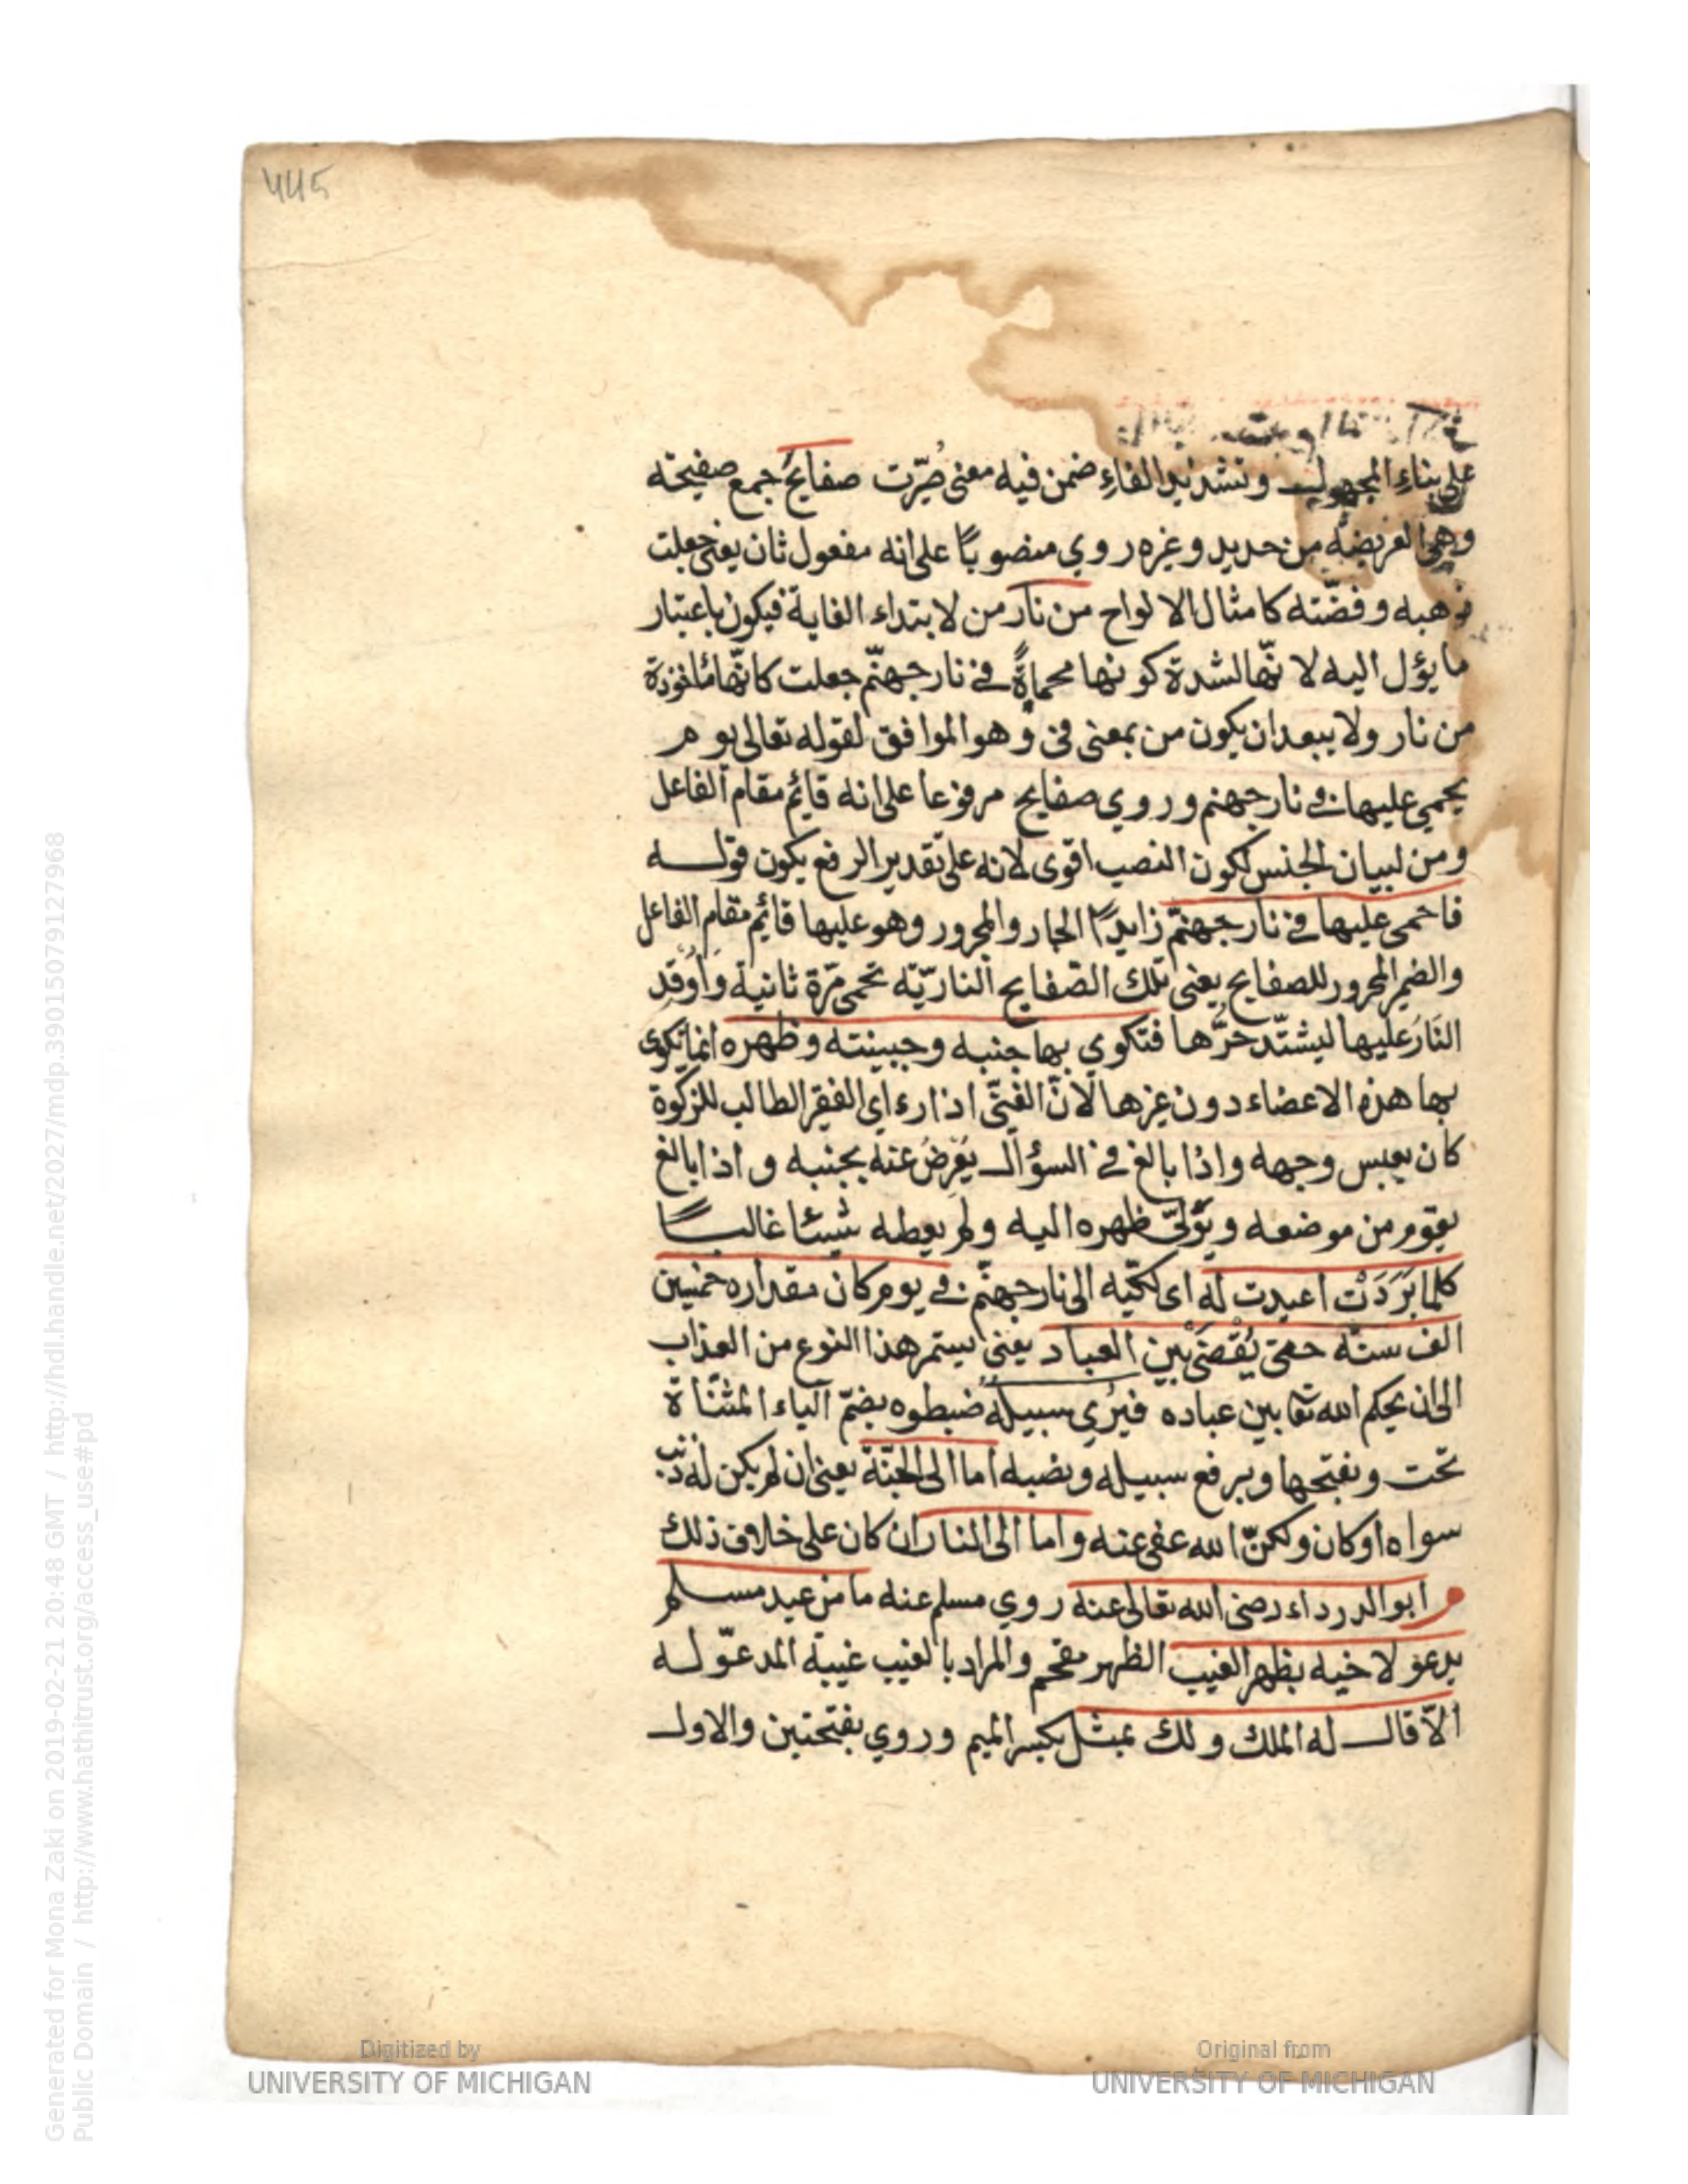 445
على بناء المجهول وتشديد الفاء ضمن فيه معنى صُيّرت صفايحُ جمع صفيحته
وهي العريضة من حديد وغيره روي منصوبًا على انه مفعول ثان يعنى جعلت
ذهبه وفضّته كامثال الالواح من نار من لابتداء الغاية فيكون باعتبار
ما يؤل اليه لانّها لشدة كونها محماةً في نار جهنّم جعلت كانّها مأخوذة
من نار ولا يبعد ان يكون من بمعنى فى وهو الموافق لقوله تعالى يوم
يحمى عليها في نار جهنم وروي صفايح مرفوعا على انه قائم مقام الفاعل
ومن لبيان الجنس لكون النصب اقوى لانه على تقدير الرفع يكون قولــه
فاحمى عليها في نار جهنّم زايدًا الجار والمجرور وهو عليها قائم مقام الفاعل
والضمير المجرور للصفايح يعنى تلك الصّفايح الناريّه تحمى مرّة ثانية وَاُوقد
النَارُ عليها ليشتدّ حرُّها فتكوي بها جنبه وجبينته وظهره انما تكوى
بها هذه الاعضاء دون غيرها لأنّ الغنىّ اذا رءاى الفقير الطالب للزكوة
كان يعبس وجهه واذا بالغ في السؤالــ يُعْرِضُ عنه بجنبه واذا بالغ
يقوم من موضعه ويُوَلّى ظهره اليه ولم يعطه شيئا غالبــًا
كلما بَرَدَتْ اعيدت له اى لكيّه الى نار جهنّم في يوم كان مقداره خمسين
الف سنة حتى يُقْضَىْ بين العباد يعنى يستمر هذا النوع من العذاب
الى ان يحكم الله تعا بين عباده فيُرٰي سبيلُه ضبطوه بضمّ الياء المثنّاة
تحت وبفتحها وبرفع سبيله ونصبه اما الى الجنّة يعنى ان لم يكن له ذنب
سواه او كان ولكنّ الله عفى عنه واما الى النار ان كان على خلاف ذلك
م ابو الدرداء رضى الله تعالى عنه روي مسلم عنه ما من عبد مســلم
يدعو لاخيه بظهر الغيب الظهر مقحم والمراد بالغيب غيبة المدعوّ لــه
الاّ قالــ له الملك ولك بمثل بكسر الميم وروي بفتحتين والاولــ
Digitized by
UNIVERSITY OF MICHIGAN
Original from
UNIVERSITY OF MICHIGAN
Generated for Mona Zaki on 2019-02-21 20:48 GMT / http://hdl.handle.net/2027/mdp.39015079127968
Public Domain / http://www.hathitrust.org/access_use#pd